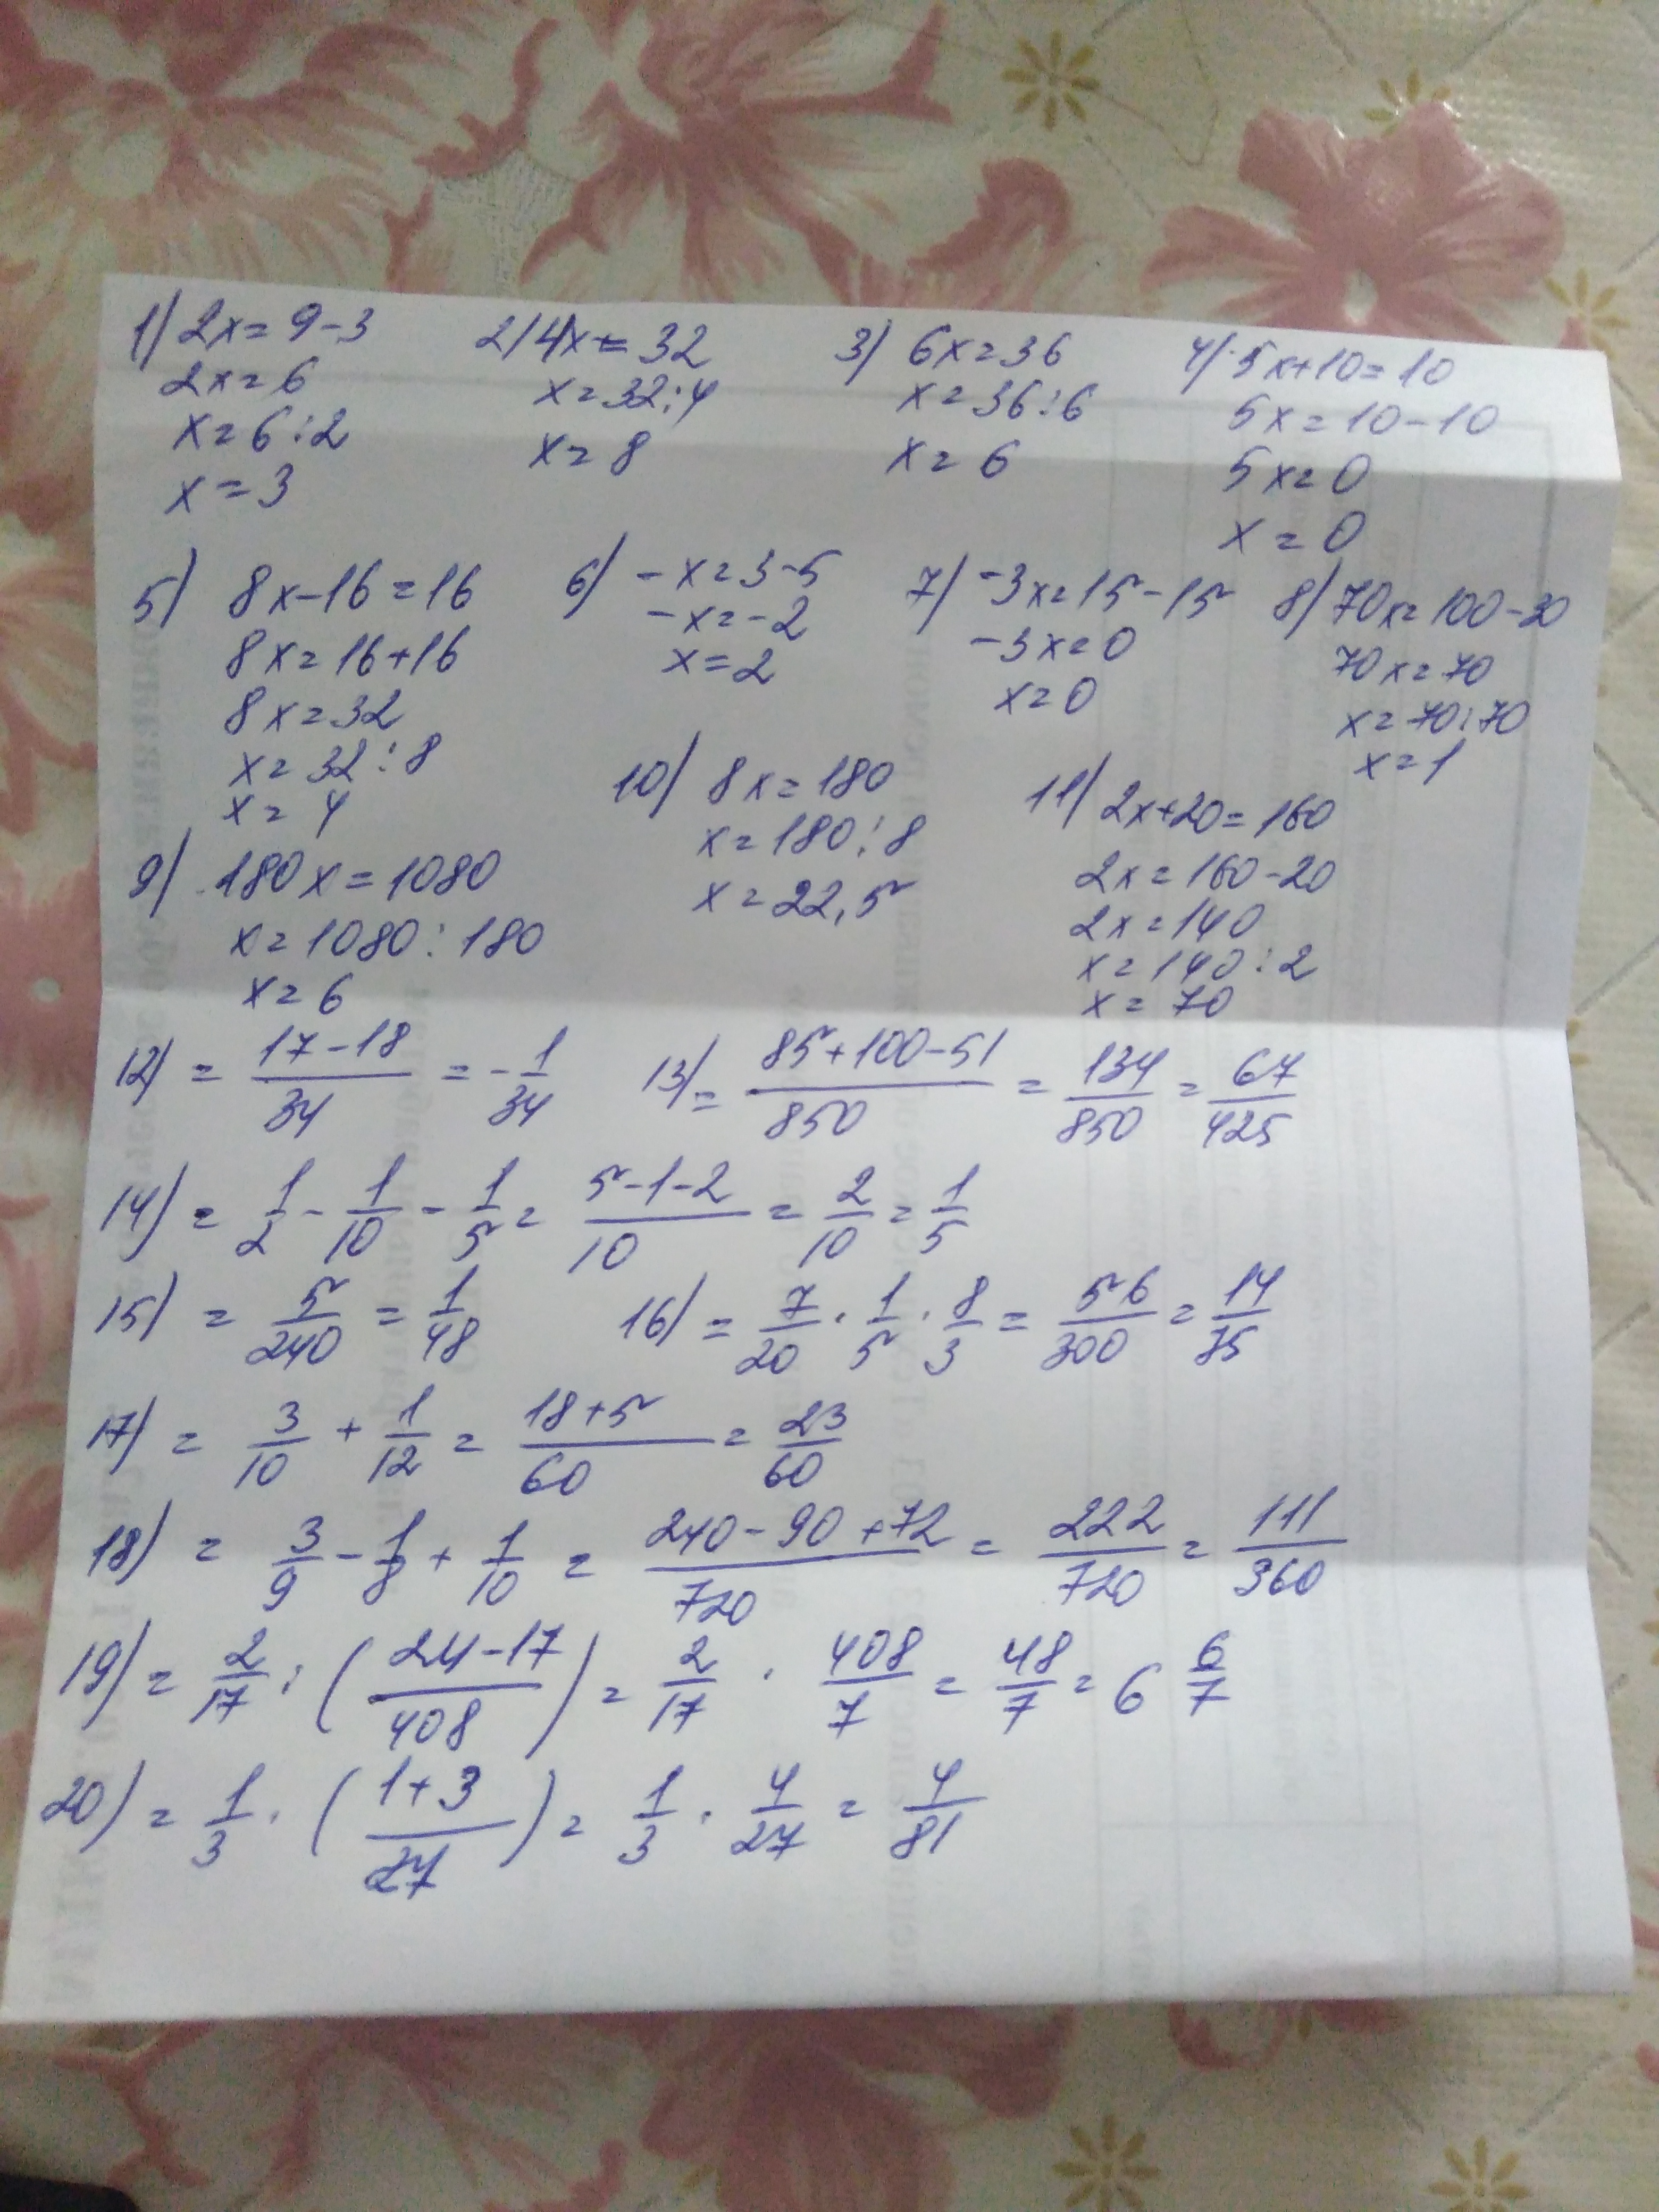 1) 2x=9-3
2x=6
x=6:2
x=3
2) 4x=32
x=32:4
x=8
3) 6x=36
x=36:6
x=6
4) 5x+10=10
5x=10-10
5x=0
x=0
5) 8x-16=16
8x=16+16
8x=32
x=32:8
x=4
6) -x=3-5
-x=-2
x=2
7) -3x=15-15
-3x=0
x=0
8) 70x=100-30
70x=70
x=70:70
x=1
9) 180x=1080
x=1080:180
x=6
10) 8x=180
x=180:8
x=22,5
11) 2x+20=160
2x=160-20
2x=140
x=140:2
x=70
12) = 17-18/34 = -1/34
13) = 85+100-51/850 = 134/850 = 67/425
14) = 1/2 - 1/10 - 1/5 = 5-1-2/10 = 2/10 = 1/5
15) = 5/240 = 1/48
16) = 7/20 · 1/5 · 8/3 = 56/300 = 14/75
17) = 3/10 + 1/12 = 18+5/60 = 23/60
18) = 3/9 - 1/8 + 1/10 = 240-90+72/720 = 222/720 = 111/360
19) = 2/17 : (24-17/408) = 2/17 · 408/7 = 48/7 = 6 6/7
20) = 1/3 · (1+3/27) = 1/3 · 4/27 = 4/81